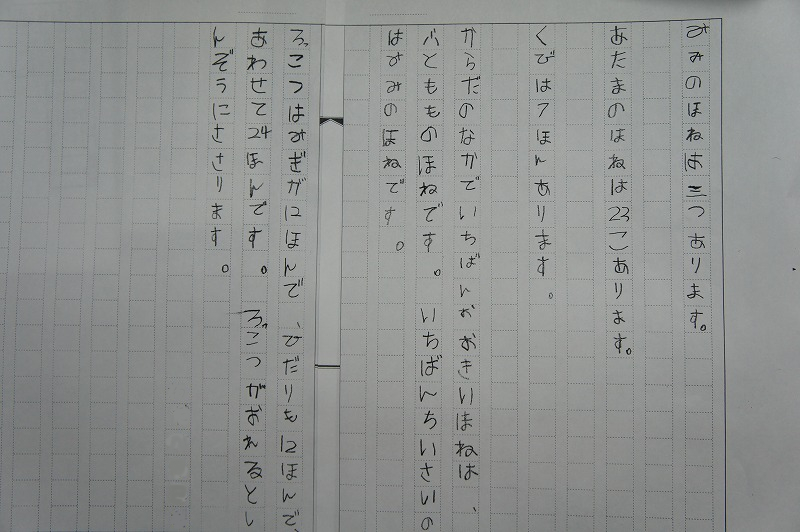 みみのほねは三つあります。
あたまのほねは23こあります。
くびは7ほんあります。
からだのなかでいちばんおおきいほねは、
ふとももの ほねです。 いちばんちいさいの
はみみのほねです。
ろっこつはみぎが12ほんで、ひだりも12ほんで、
あわせて24ほんです。 ろっこつがおれるとし
んぞうにささります。